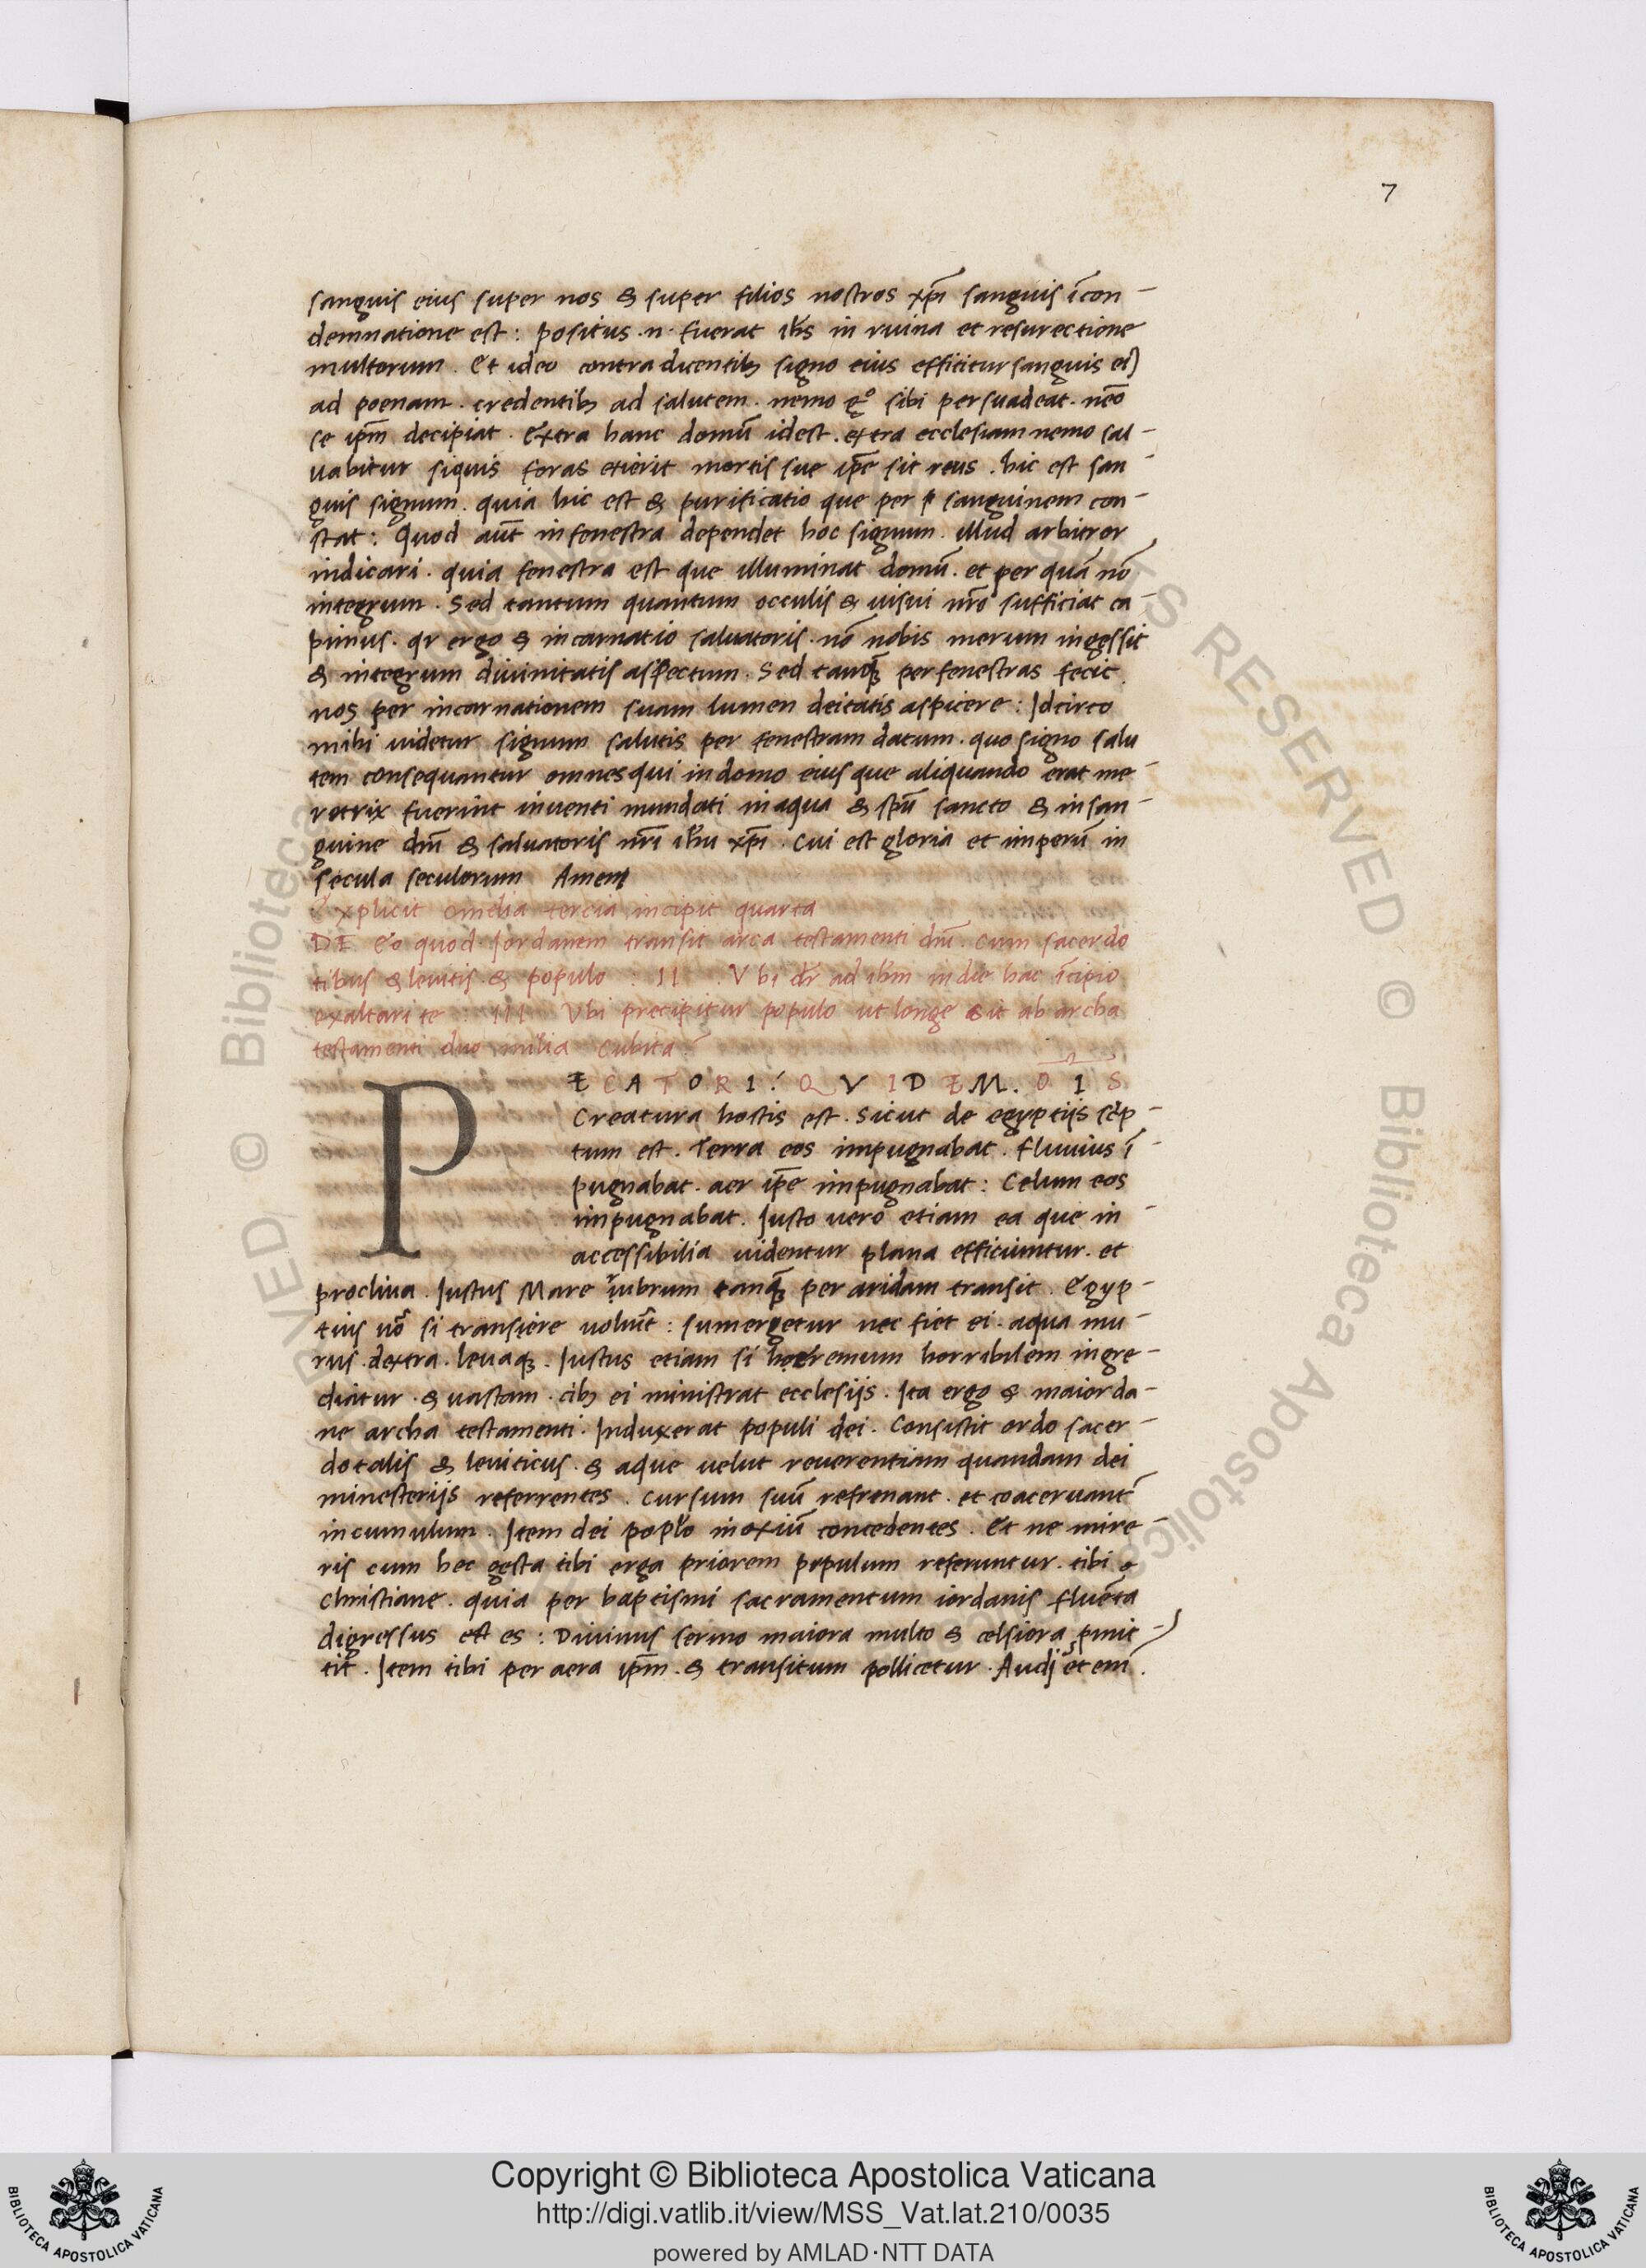 7
sanguis eius super nos & super filios nostros xp̄i sanguis ī con-
demnatione est: positus .n. fuerat ihs̄ in ruina et resurectione
multorum. Et ideo contradicentib; signo eius efficitur sanguis ei⁹
ad poenam. credentib; ad salutem. nemo gº sibi persuadeat. nēo
se ip̄m decipiat. Extra hanc domū idest. extra ecclesiam nemo sal-
vabitur siquis foras exierit mortis sue ip̄e sit reus. hic est san-
guis signum. quia hic est & purificatio que per sanguinem con-
stat: Quod aūt in fenestra dependet hoc signum. illud arbitror
indicari. quia fenestra est que illuminat domū. et per quā nō
integrum. Sed tantum quantum occulis & visui nr̄o sufficiat ca-
pimus. qr ergo & incarnatio saluatoris. nō nobis merum ingessit
& integrum divinitatis aspectum. Sed tanq̄ per fenestras fecit
nos per incarnationem suam lumen deitatis aspicere: Idcirco
mihi videtur signum salutis per fenestram datum. quo signo salu
tem consequantur omnes qui in domo eius que aliquando erat me-
retrix fuerint inventi mundati in aqua & spū sancto & in san-
guine dn̄i & saluatoris nr̄i ihu xp̄i. Cui est gloria et imperiū in
secula seculorum Amen
Explicit omelia tercia incipit quarta
DE Eo quod Iordanem transit arca testamenti dn̄i. cum sacerdo
tibus & levitis & populo : II . Vbi dr̄ ad ihm in die hac īcipio
exaltari te : III Vbi precipitur populo ut longe sit ab archa
testamenti duo milia cubita:
PECATORI: QVIDEM. OĪS
Creatura hostis est. Sicut de egyptijs sc̄p-
tum est. Terra eos impugnabat. fluvius ī-
pugnabat. aer ip̄e impugnabat: Celum eos
impugnabat. Iusto vero etiam ea que in-
accessibilia videntur plana efficiuntur. et
procliva. Iustus Mare rubrum tanq̄ per aridam transit. Egyp-
tius vō si transiere voluīt: sumergetur nec fiet ei. aqua mu-
rus. dextra. levaq;. Iustus etiam si heremum horribilem ingre-
diatur. & vastam. cib; ei ministrat ecclesijs. Ita ergo & maiorda-
ne archa testamenti. Induxerat populi dei. Consistit ordo sacer-
dotalis & leviticus. & aque velut reverentiam quandam dei
minesterijs referrentes. cursum suū refrenant. et coacervant
in cumulum. Item dei popl̄o inoxiū concedentes. Et ne mire-
ris cum hec gesta tibi erga priorem populum referuntur. tibi o
christiane. quia per baptismi sacramentum iordanis fluēta
digressus est es: Divinus sermo maiora multo & celsiora p̱mit-
tit. Item tibi per aera ip̄m. & transitum pollicetur. Audj et enī.
Copyright © Biblioteca Apostolica Vaticana
http://digi.vatlib.it/view/MSS_Vat.lat.210/0035
powered by AMLAD·NTT DATA
BIBLIOTECA APOSTOLICA VATICANA
BIBLIOTECA APOSTOLICA VATICANA